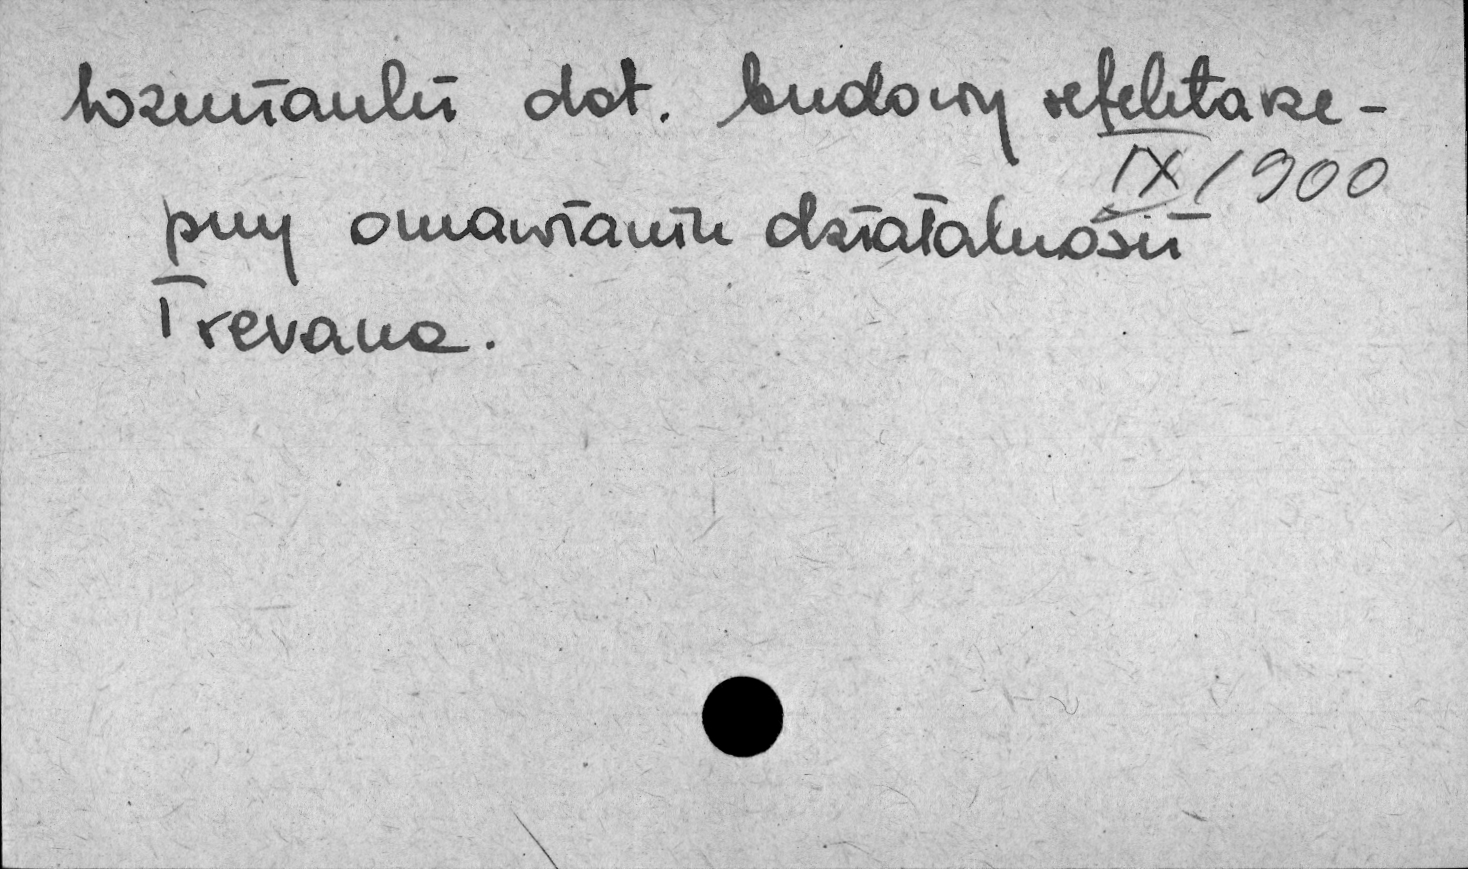 Wzmianki dot. budowy refektarze -
IX/900
przy omawianiu działalności
Trevana.